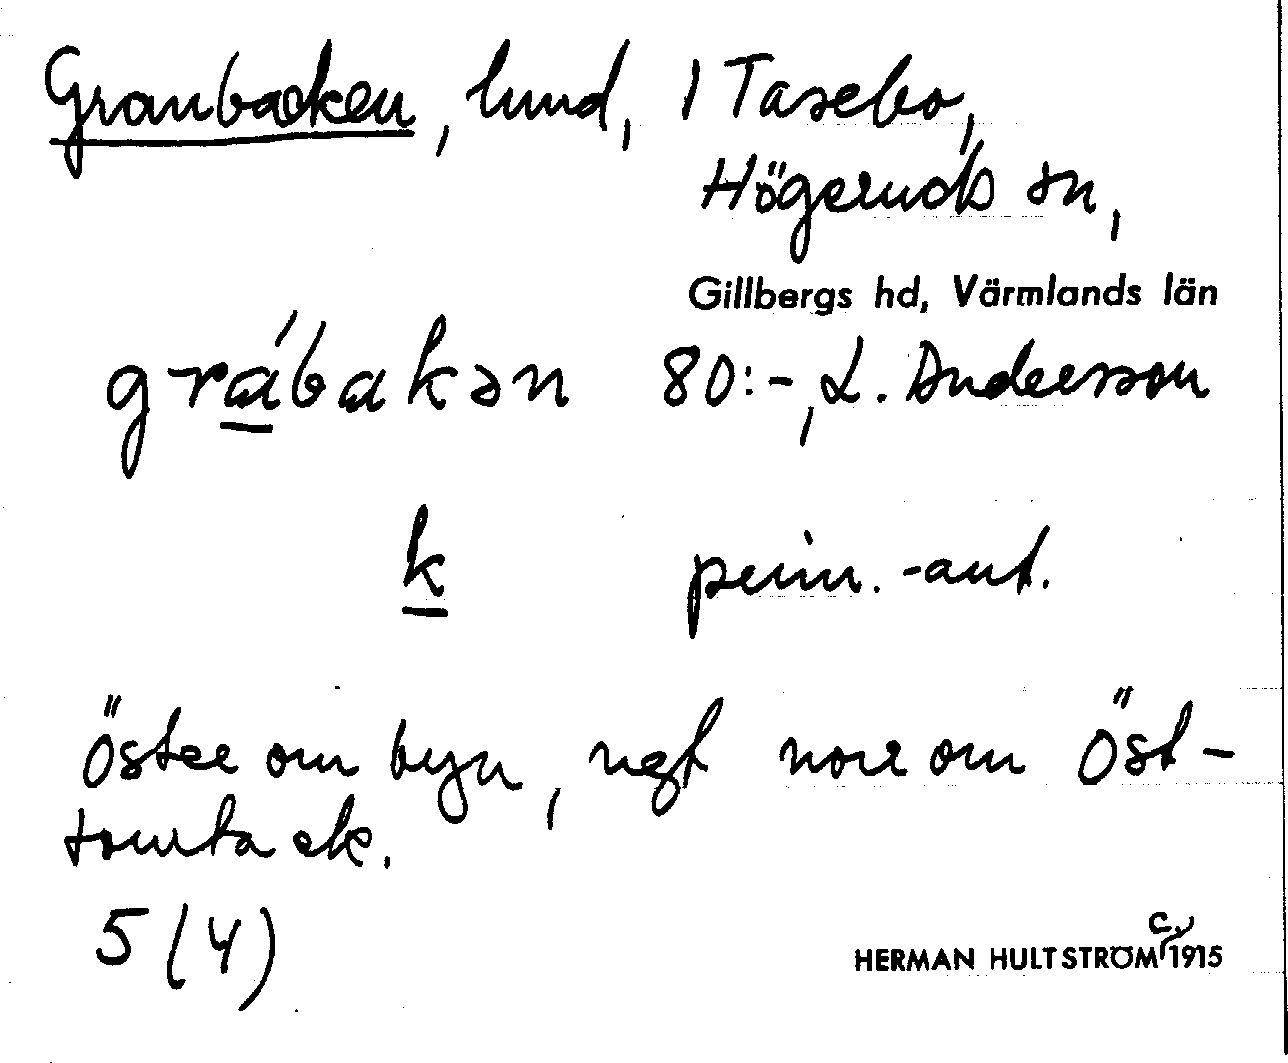 Granbacken, lund, i Tasebo,
Högeruds sn,
Gillbergs hd, Värmlands län
grábakən 80:-, L. Andersson
k pinn.-ant.
Öster om byn, ngt norr om Öst-
tomtack.
5 (4)
HERMAN HULTSTRÖM c. 1915